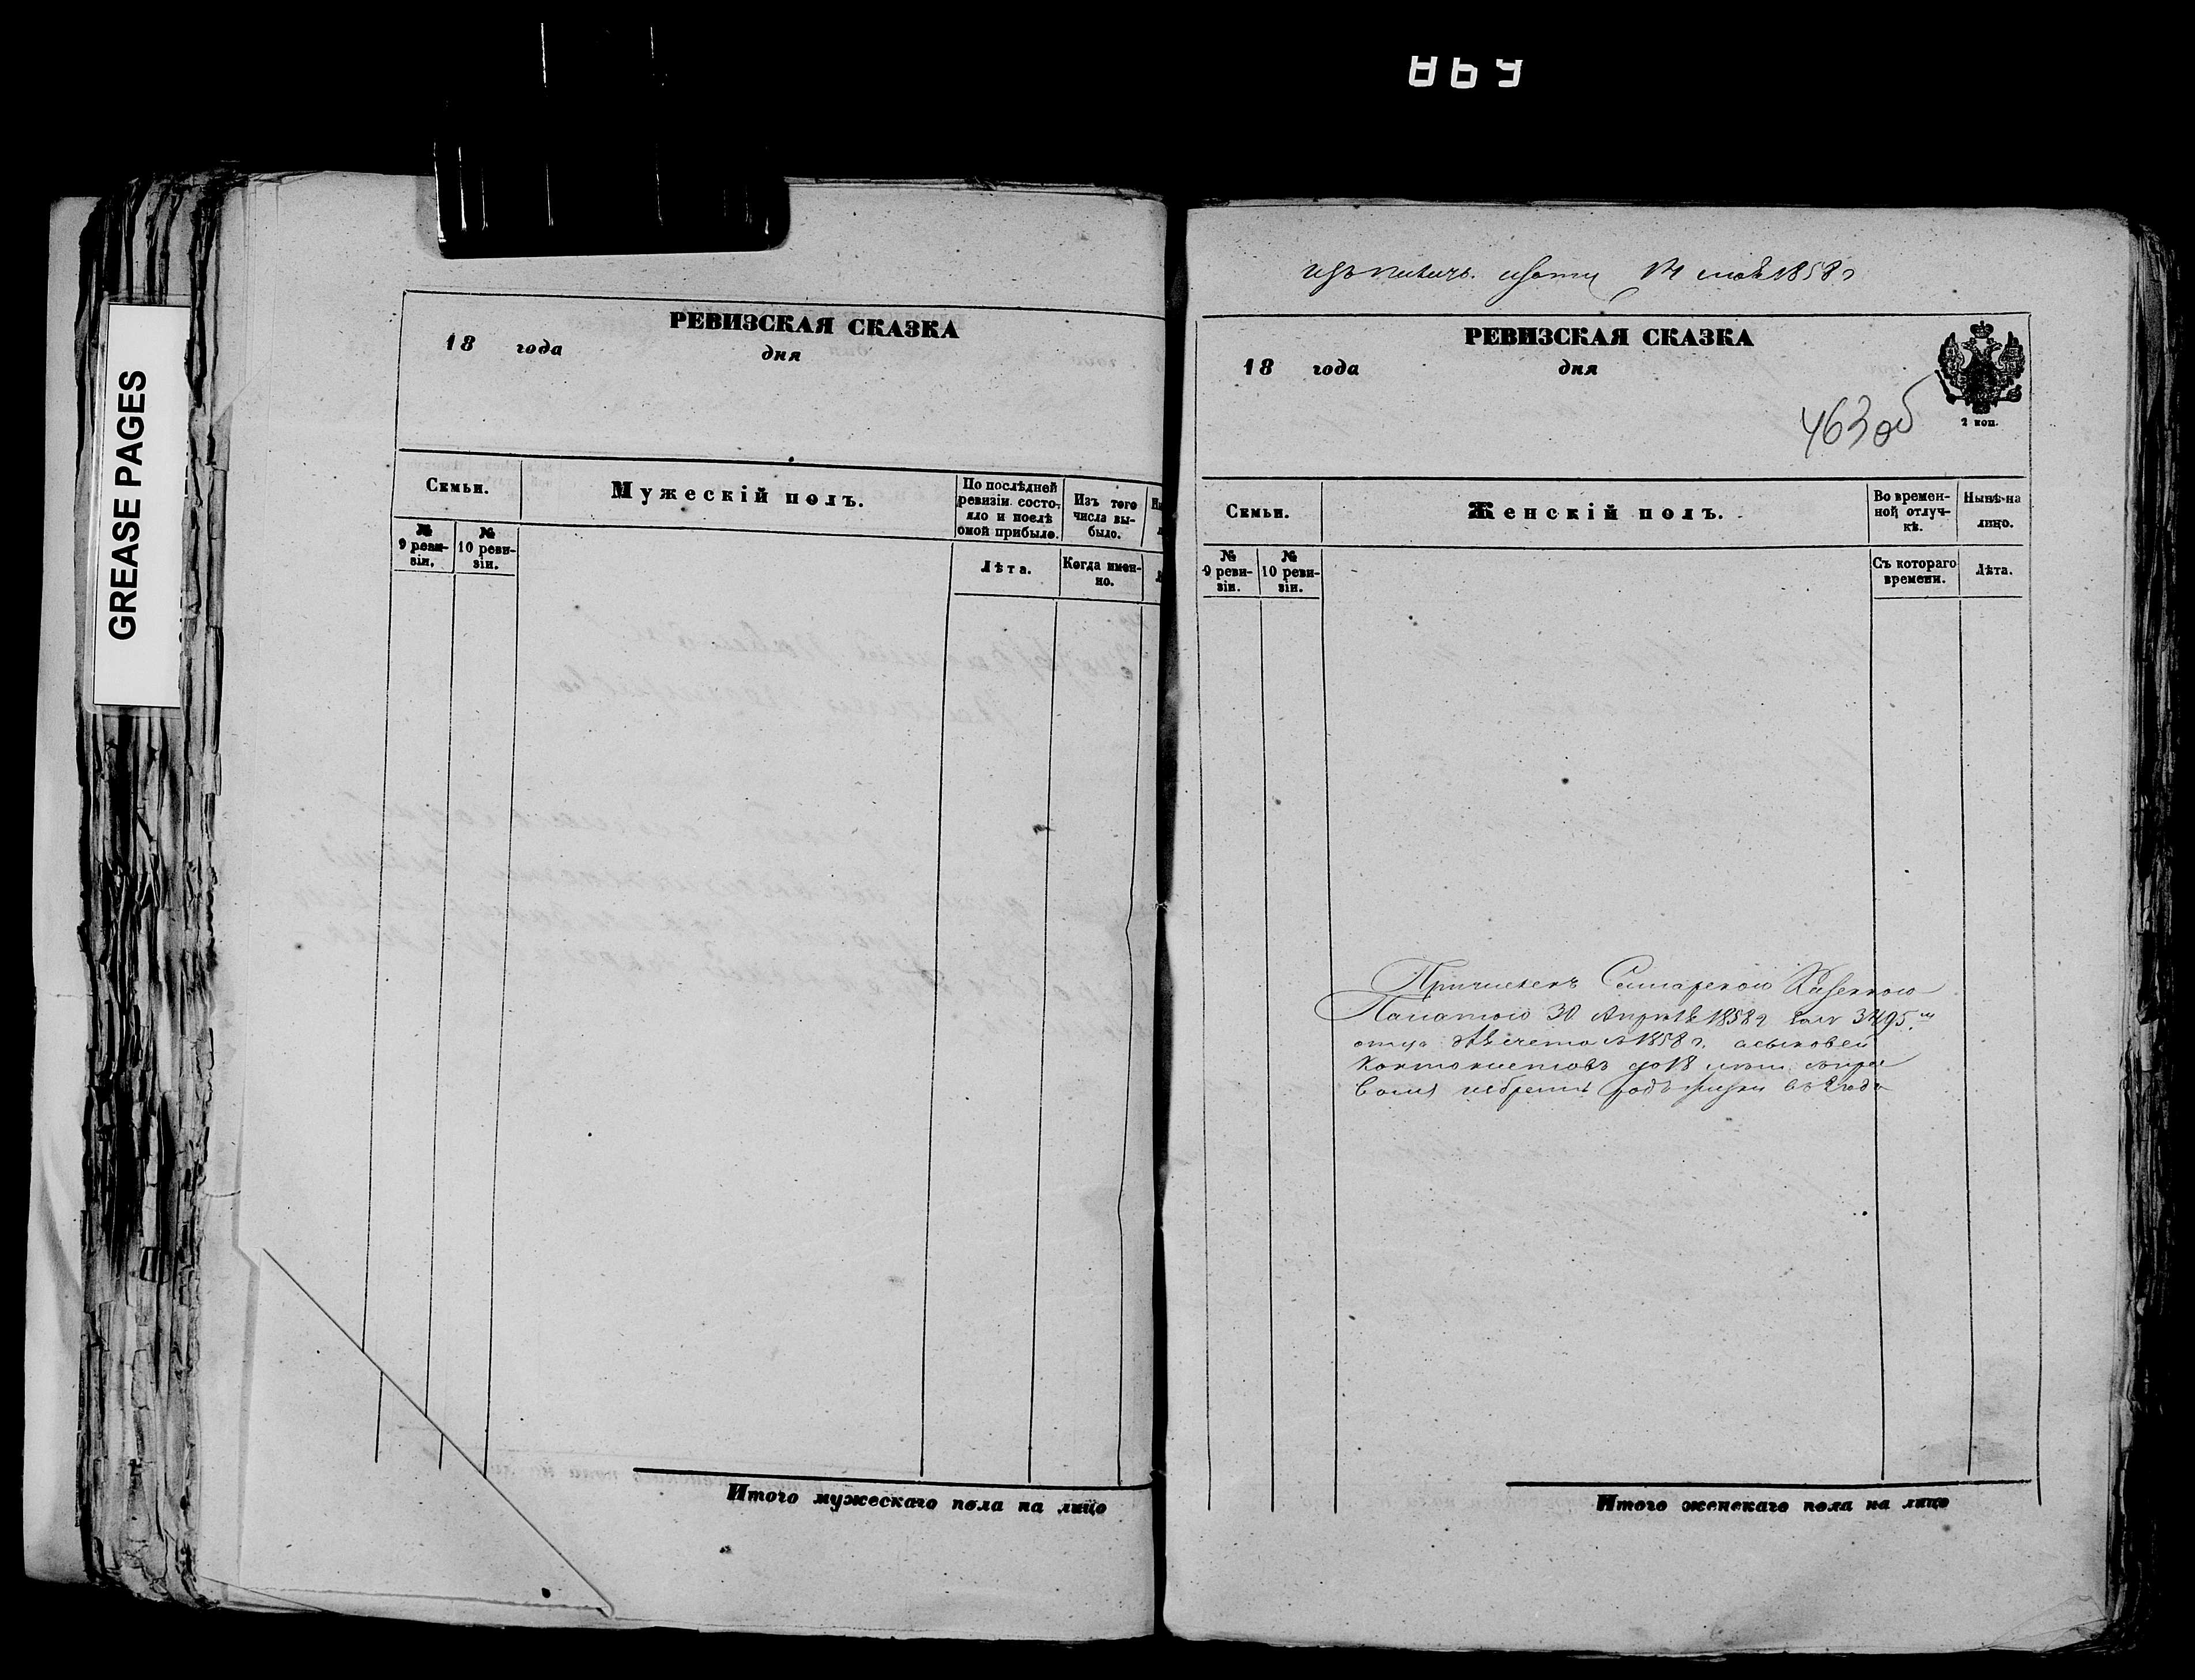 869
GREASE PAGES
РЕВИЗСКАЯ СКАЗКА
18 года дня
Семьи.
Мужескій полъ.
По послѣдней ревизіи состояло и послѣ оной прибыло.
Изъ того числа выбыло.
№ 9 ревизіи.
№ 10 ревизіи.
Лѣта.
Когда именно.
Итого мужескаго пола на лицо
1858 г
РЕВИЗСКАЯ СКАЗКА
18 года дня
2 коп.
463 об
Семьи.
Женскій полъ.
Во временной отлучкѣ.
Нынѣ на лицо.
№ 9 ревизіи.
№ 10 ревизіи.
Съ котораго времени.
Лѣта.
Причисленъ Самарскою Казенною
Палатою 30 Апрѣля 1858 г 3495
отца 1858 г. а сыновей
Кантонистовъ до 18
избрать родъ жизни въ 2 года
Итого женскаго пола на лицо